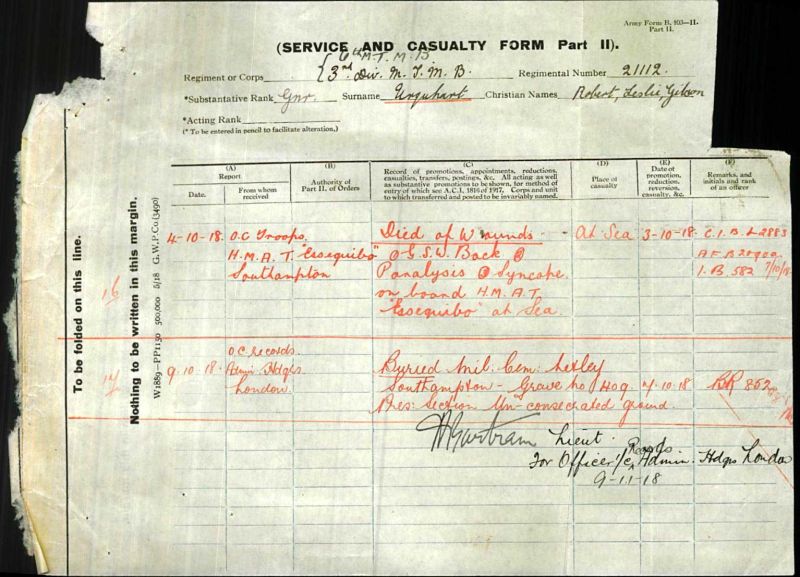 Army Form B. 103—II.
Part II.
(SERVICE AND CASUALTY FORM Part II).
6th M.T.M.B.
Regiment or Corps 3rd Div. M.T.M.B. Regimental Number 21112.
*Substantive Rank Gnr. Surname Urquhart Christian Names Robert, Leslie, Gibson
*Acting Rank
(* To be entered in pencil to facilitate alteration.)
To be folded on this line.
Nothing to be written in this margin.
W1889—PP1150 500,000 5/18 G.W.P.Co.(3490)
(A)
Report
Date.
From whom received
(B)
Authority of Part II. of Orders
(C)
Record of promotions, appointments, reductions, casualties, transfers, postings, &c. All acting as well as substantive promotions to be shown, for method of entry of which see A.C.I. 1816 of 1917. Corps and unit to which transferred and posted to be invariably named.
(D)
Place of casualty
(E)
Date of promotion, reduction, reversion, casualty, &c.
(F)
Remarks, and initials and rank of an officer
16
4-10-18. O.C Troops, Died of Wounds - At Sea 3-10-18. C.I.B. L2883
H.M.A.T. "Essequibo" G.S.W. Back
Southampton Paralysis Syncope I.B. 582 7/10/18
on board H.M.A.T.
"Essequibo" at Sea.
17
O.C. Records.
9-10-18. Admin. Hdqrs. Buried Mil: Cem: Netley
London. Southampton - Grave no 7-10-18 BR 862
Pres: Section Un-consecrated ground.
Lieut.
Records
For Officer i/c Admin. Hdqrs London
9-11-18